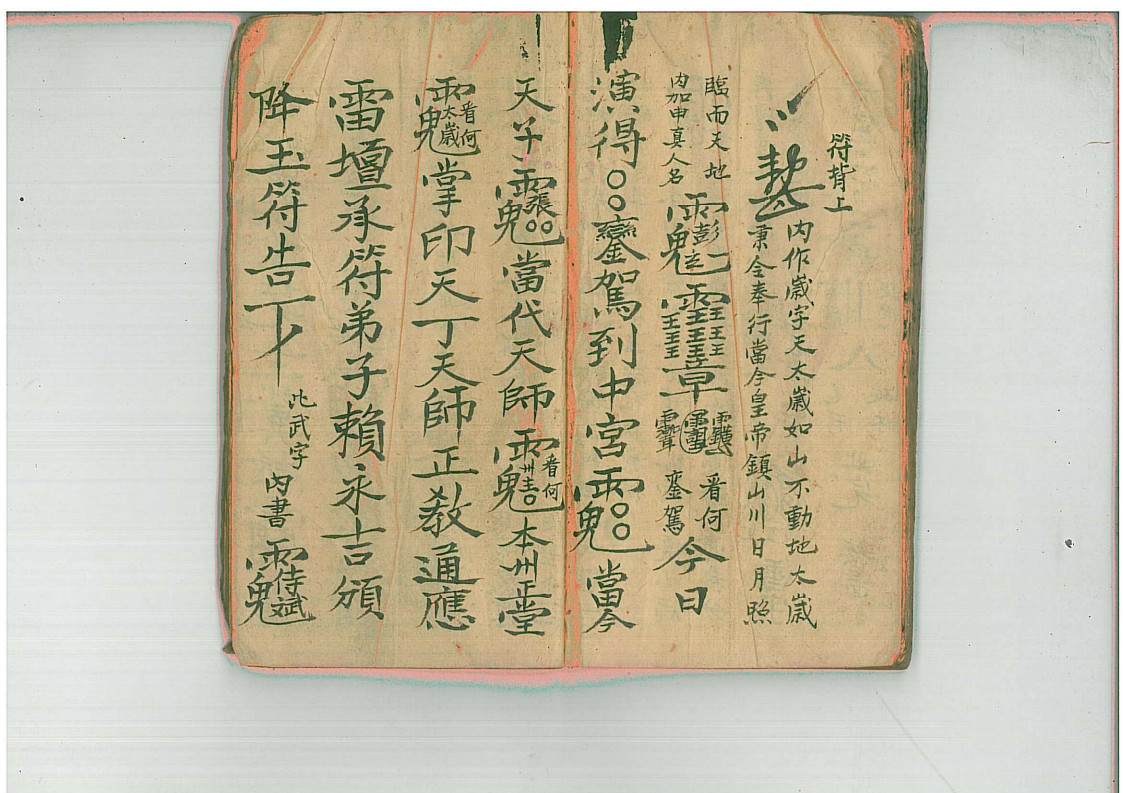 符背上
内作歲字天太歲如山不動地太歲
秉令奉行當今皇帝鎮山川日月照
臨而天地
内加申真人名
彭
章
看何
鑾駕
今日
演得○○鑾駕到中宮
○○
當今
天子
張○○
當代天師
看何
本州正堂
看何
太歲
掌印天丁天師正教通應
雷壇承符弟子賴永吉頒
降玉符告下
此武字
内書
侍斌